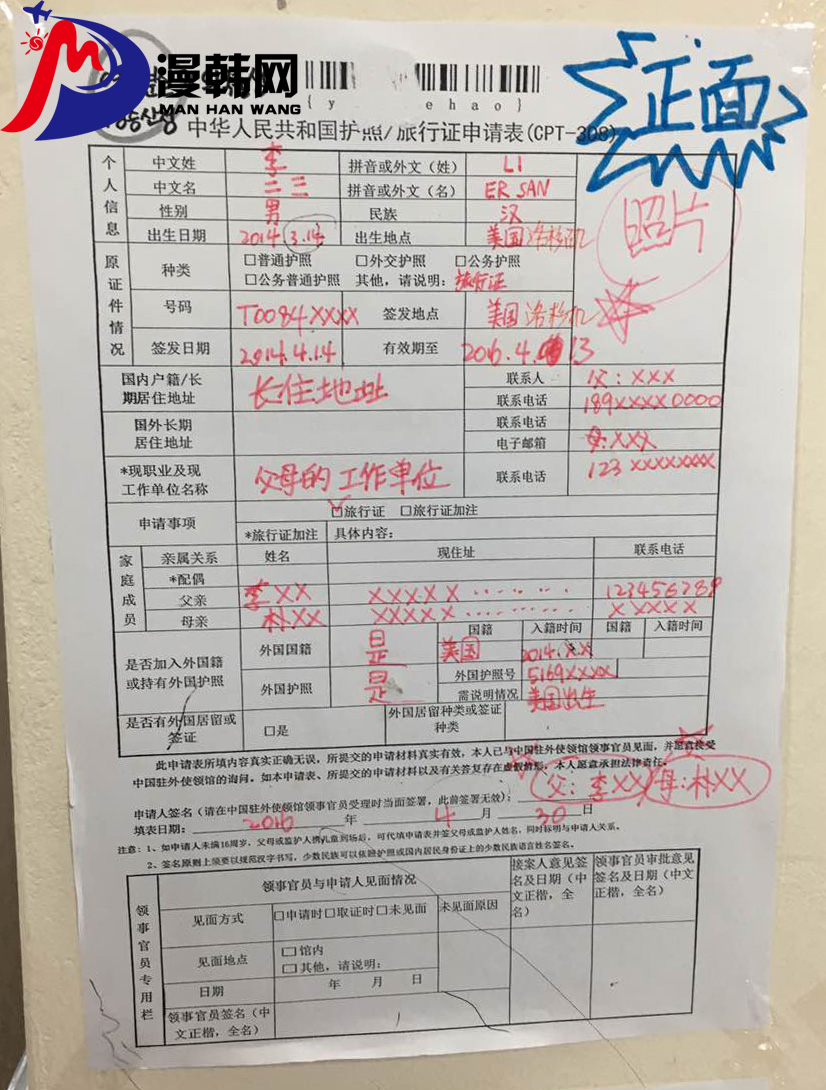 漫韩网
MAN HAN WANG
{y ehao}
正面
中华人民共和国护照/旅行证申请表(CPT-308)
个人信息
中文姓 李 拼音或外文(姓) LI
中文名 二三 拼音或外文(名) ER SAN
性别 男 民族 汉
出生日期 2014.3.14 出生地点 美国洛杉矶
照片
原证件情况
种类 □普通护照 □外交护照 □公务护照
□公务普通护照 其他，请说明：旅行证
号码 T0084XXXX 签发地点 美国洛杉矶
签发日期 2014.4.14 有效期至 2016.4.13
国内户籍/长期居住地址 长住地址 联系人 父：XXX
联系电话 189XXXX0000
国外长期居住地址 联系电话
电子邮箱 母：XXX
*现职业及现工作单位名称 父母的工作单位 联系电话 123 XXXXXXXX
申请事项 □旅行证 □旅行证加注
*旅行证加注 具体内容：
家庭成员
亲属关系 姓名 现住址 联系电话
*配偶
父亲 李XX XXXXX 123456789
母亲 朴XX XXXXX XXXXX
是否加入外国籍或持有外国护照
国籍 入籍时间 国籍 入籍时间
外国国籍 是 美国 2014.XX
外国护照 是 外国护照号 5169XXXX
需说明情况 美国出生
是否有外国居留或签证 □是 外国居留种类或签证种类
此申请表所填内容真实正确无误，所提交的申请材料真实有效，本人已与中国驻外使领馆领事官员见面，并愿意接受
中国驻外使领馆的询问。如本申请表、所提交的申请材料以及有关答复存在虚假情形，本人愿意承担法律责任。
父：李XX 母：朴XX
申请人签名(请在中国驻外使领馆领事官员受理时当面签署，此前签署无效)：
填表日期： 2016 年 4 月 30 日
注意：1、如申请人未满16周岁，父母或监护人携儿童到场后，可代填申请表并签父母或监护人姓名，同时标明与申请人关系。
2、签名原则上须要以规范汉字书写，少数民族可以依照护照或国内居民身份证上的少数民族语言姓名签名。
领事官员专用栏
领事官员与申请人见面情况 接案人意见签名及日期(中文正楷，全名) 领事官员审批意见签名及日期(中文正楷，全名)
见面方式 □申请时□取证时□未见面 未见面原因
见面地点 □馆内
□其他，请说明：
日期 年 月 日
领事官员签名(中文正楷，全名)